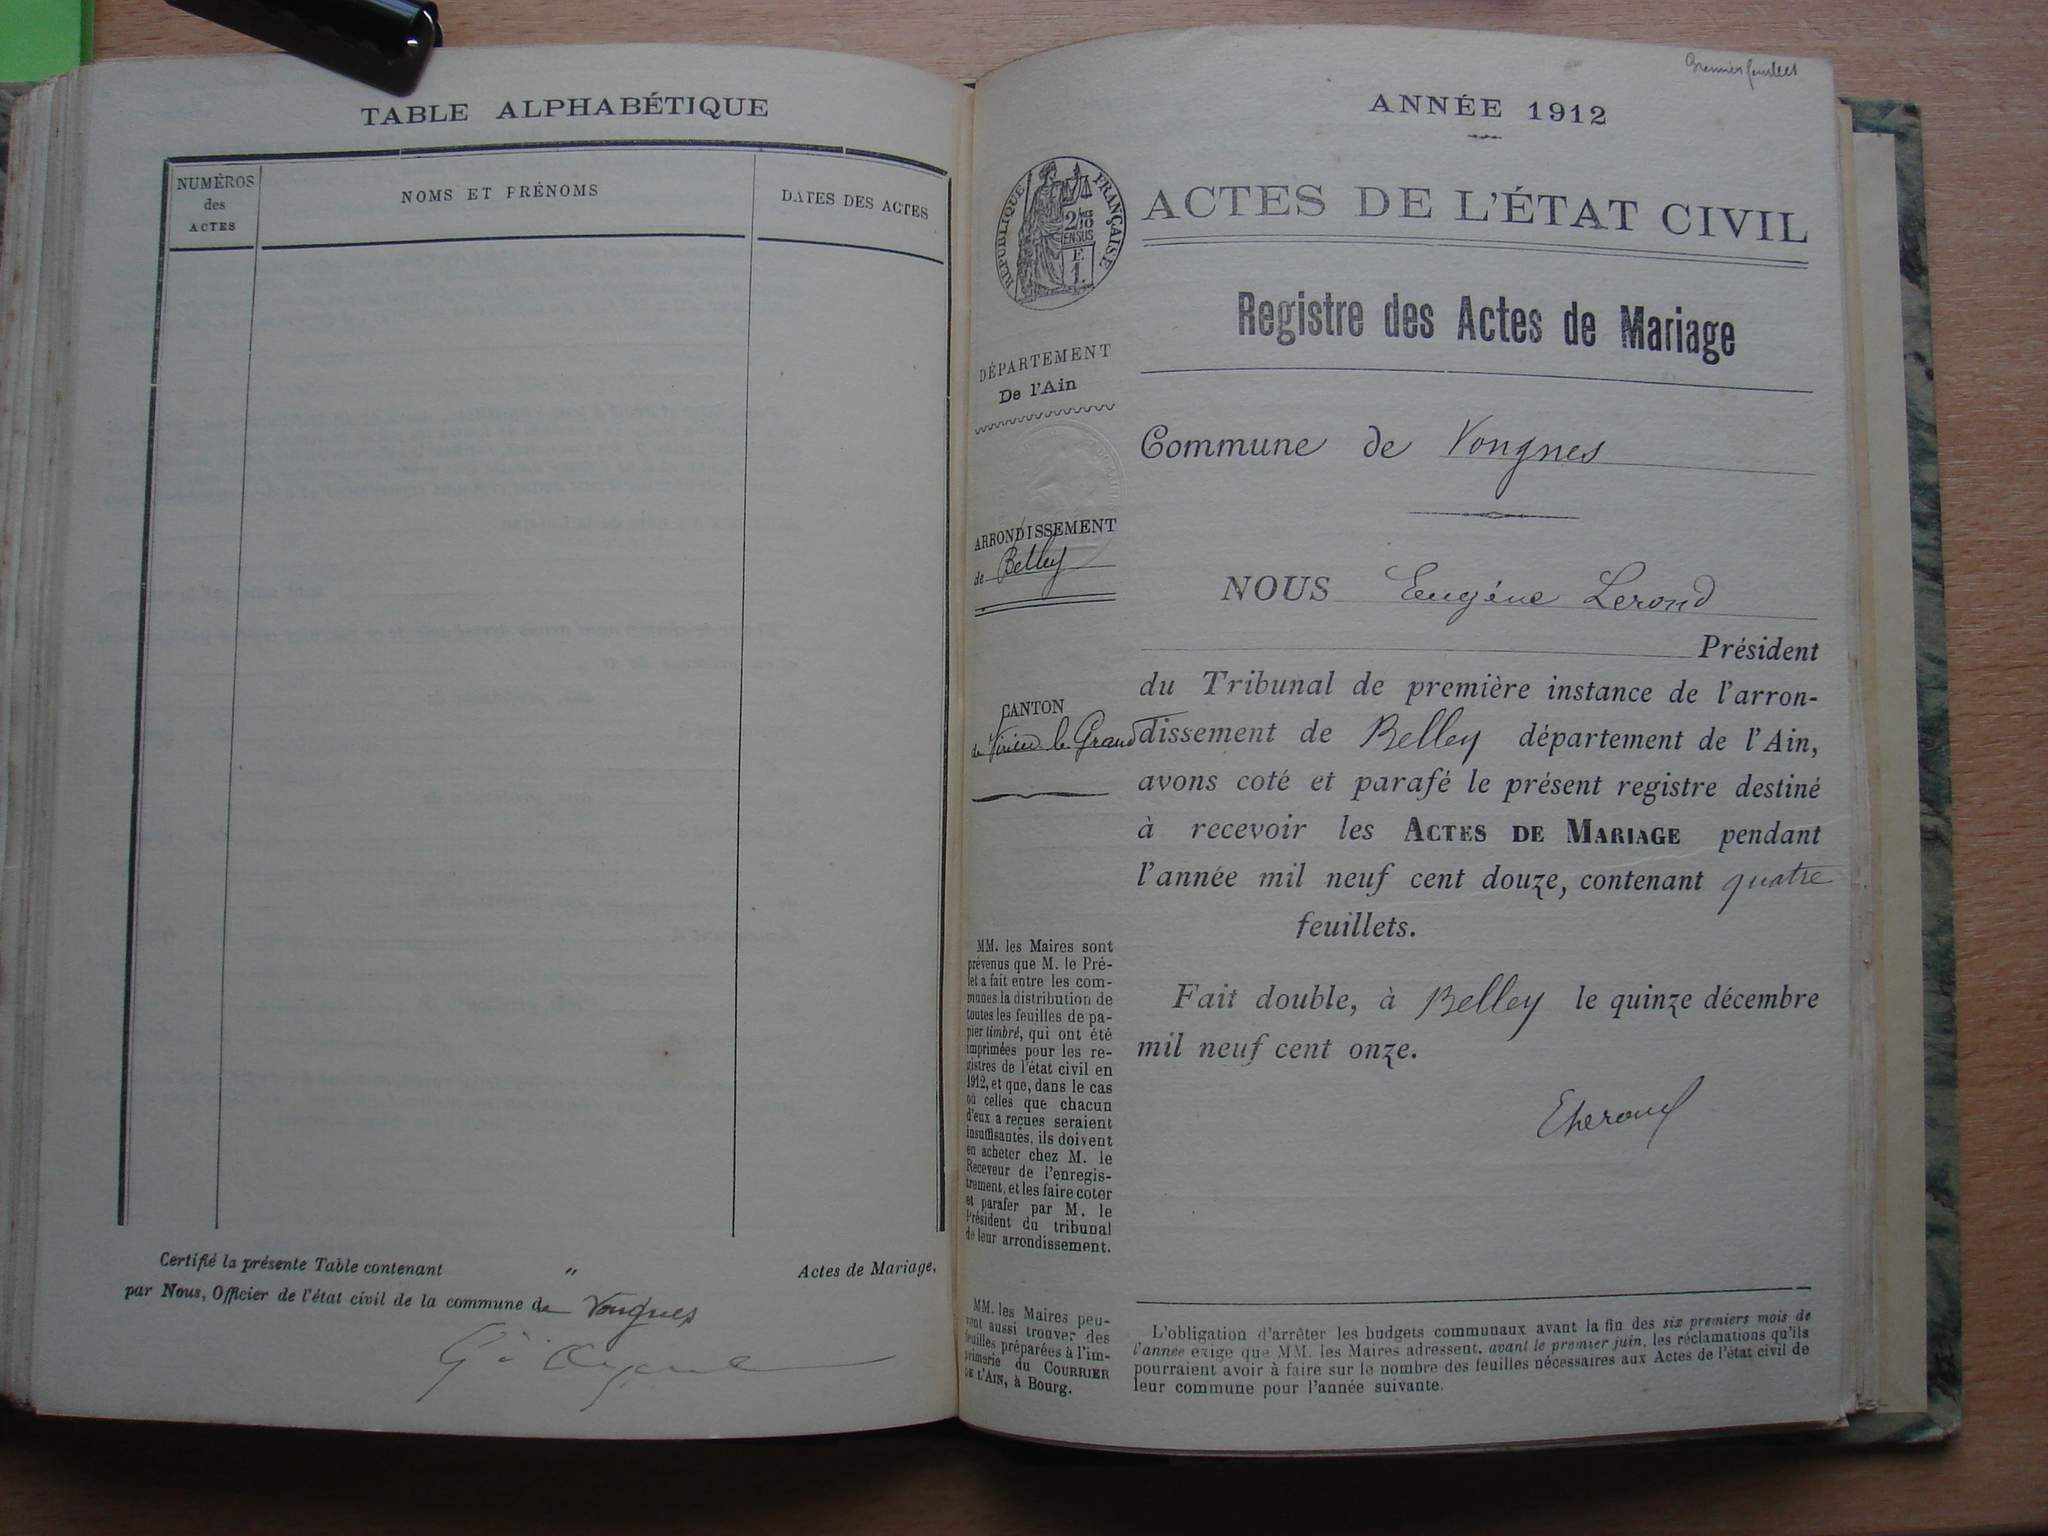 TABLE ALPHABÉTIQUE
NUMÉROS
des
ACTES
NOMS ET PRÉNOMS
DATES DES ACTES
Certifié la présente Table contenant " Actes de Mariage,
par Nous, Officier de l'état civil de la commune de Vongnes
Premier feuillet
ANNÉE 1912
RÉPUBLIQUE FRANÇAISE
2/10
EN SUS
F
1.
ACTES DE L'ÉTAT CIVIL
Registre des Actes de Mariage
DÉPARTEMENT
De l'Ain
ARRONDISSEMENT
de Belley
CANTON
de Virieu le Grand
MM. les Maires sont
prévenus que M. le Pré-
fet a fait entre les com-
munes la distribution de
toutes les feuilles de pa-
pier timbré, qui ont été
imprimées pour les re-
gistres de l'état civil en
1912, et que, dans le cas
où celles que chacun
d'eux a reçues seraient
insuffisantes, ils doivent
en acheter chez M. le
Receveur de l'enregis-
trement, et les faire coter
et parafer par M. le
Président du tribunal
de leur arrondissement.
MM. les Maires peu-
vent aussi trouver des
feuilles préparées à l'im-
primerie du COURRIER
DE L'AIN, à Bourg.
Commune de Vongnes
NOUS Eugène Lerond
Président
du Tribunal de première instance de l'arron-
dissement de Belley département de l'Ain,
avons coté et parafé le présent registre destiné
à recevoir les ACTES DE MARIAGE pendant
l'année mil neuf cent douze, contenant quatre
feuillets.
Fait double, à Belley le quinze décembre
mil neuf cent onze.
L'obligation d'arrêter les budgets communaux avant la fin des six premiers mois de
l'année exige que MM. les Maires adressent, avant le premier juin, les réclamations qu'ils
pourraient avoir à faire sur le nombre des feuilles nécessaires aux Actes de l'état civil de
leur commune pour l'année suivante.